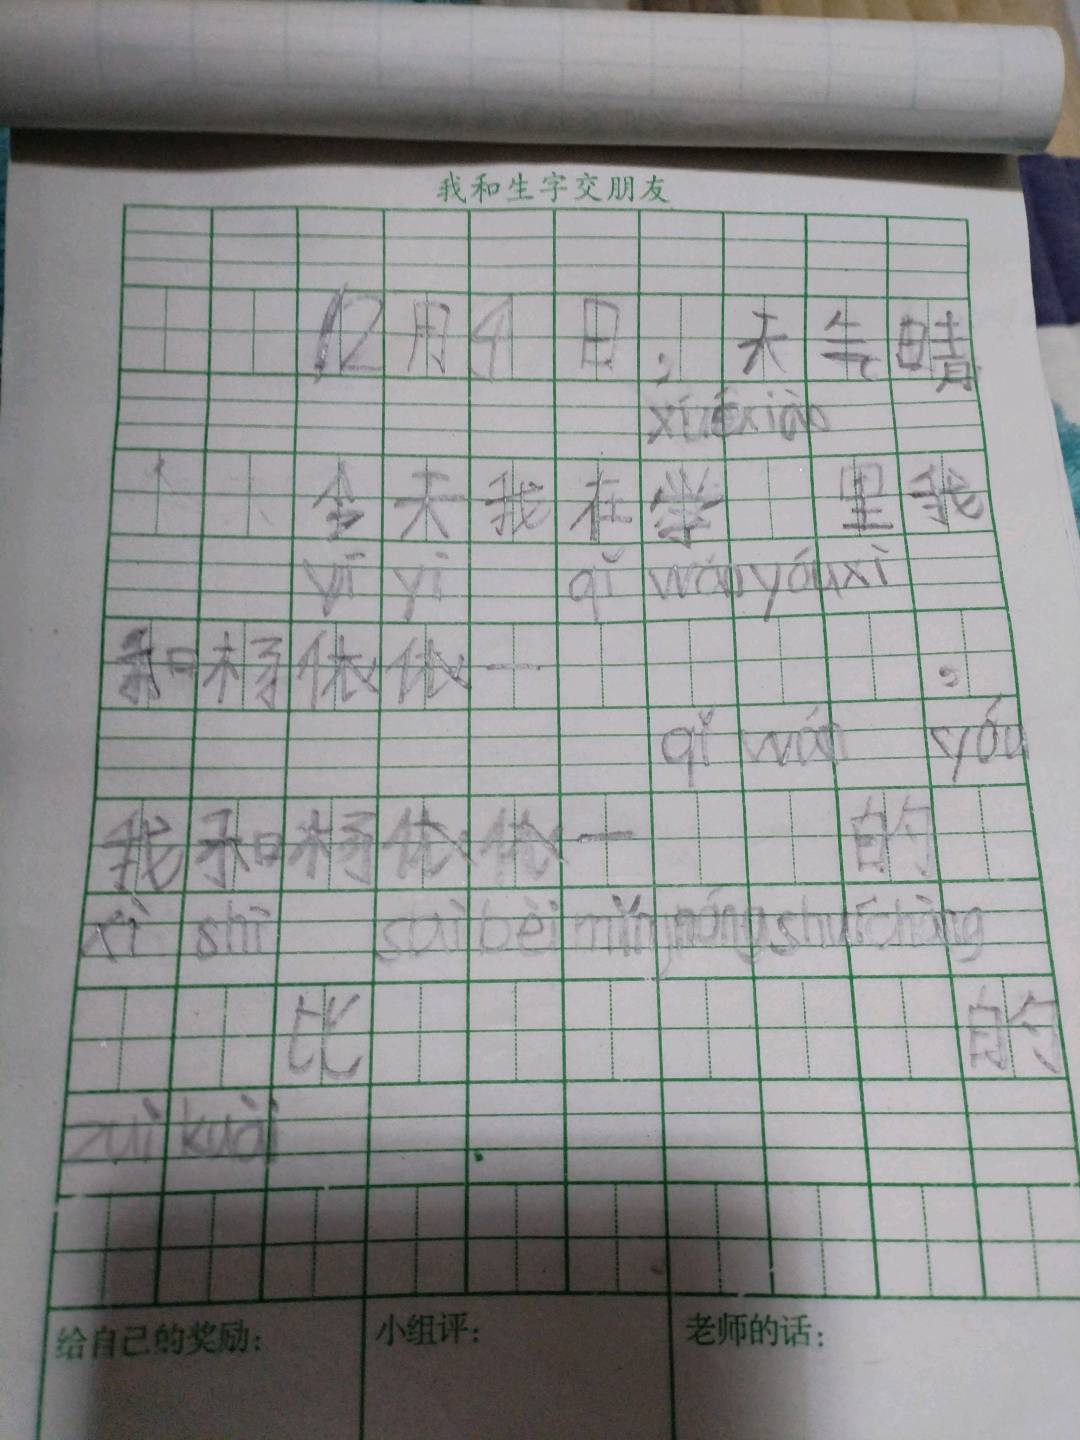 我和生字交朋友
12月9日,天气晴
xué xiào
今天我在学 里我
yī yī qǐ wán yóu xì
和杨依依一 。
qǐ wán yóu
我和杨依依一 的
xì shì sài bèi mìng nóng shuí chàng
比 的
zuì kuài
给自己的奖励: 小组评: 老师的话: